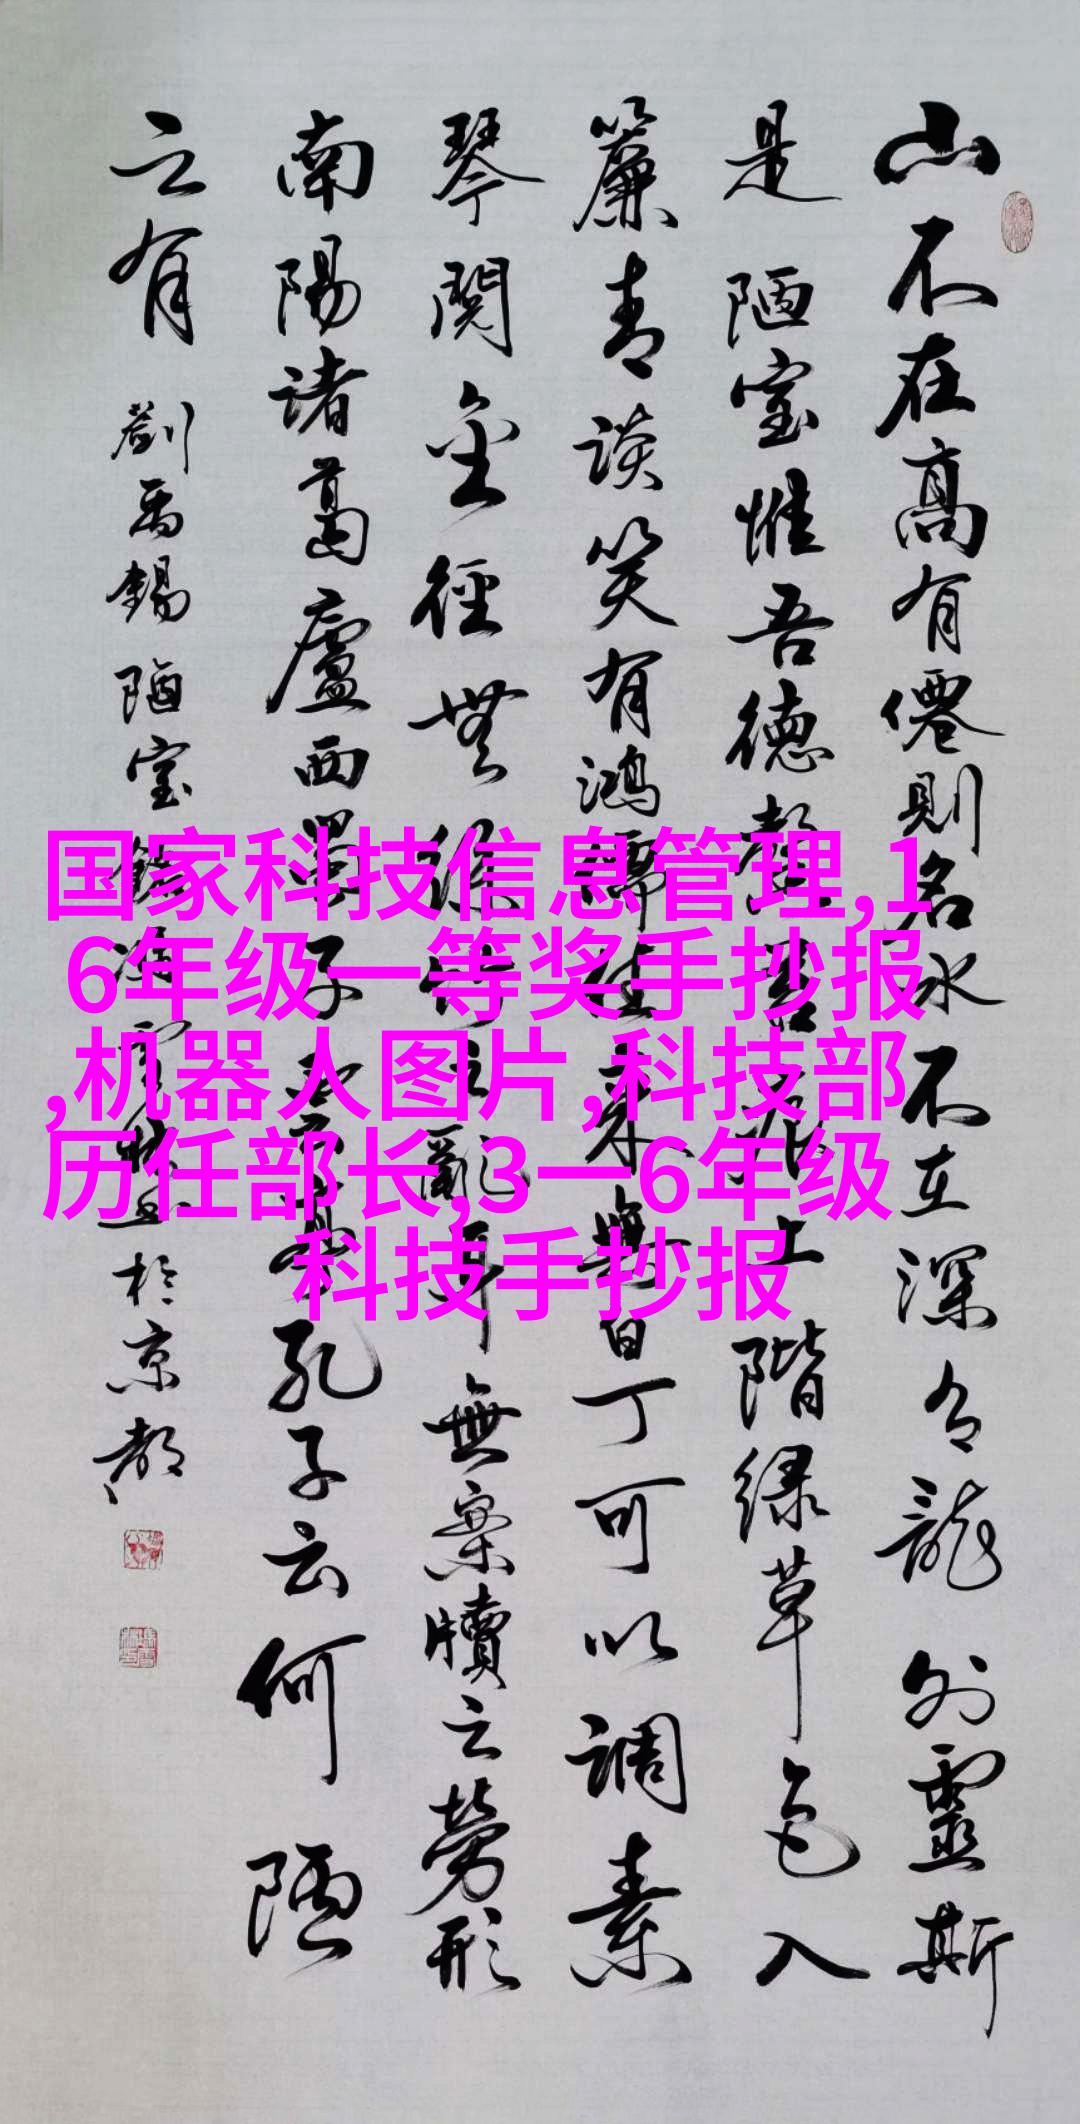 山不在高有僊則名水不在深有龍則靈斯
是陋室惟吾德馨苔痕上階绿草色入
簾青談笑有鴻儒往来無白丁可以调素
琴閲金徑無絲竹之亂耳無案牘之勞形
南陽诸葛廬西蜀子雲亭孔子云何陋
之有 劉禹錫陋室銘 於京都
国家科技信息管理,1
6年级一等奖手抄报
,机器人图片,科技部
历任部长,3一6年级
科技手抄报